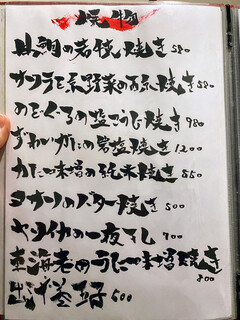 焼物
真鯛の岩塩焼き 580
サワラと京野菜の西京焼き 580
のどぐろの塩こうじ焼き 980
ずわいがにの岩塩焼き 1200
かに味噌の純米焼き 550
ヨナリのバター焼き 500
ヤリイカの一夜干し 700
車海老のうに味噌焼き 800
出汁巻玉子 500